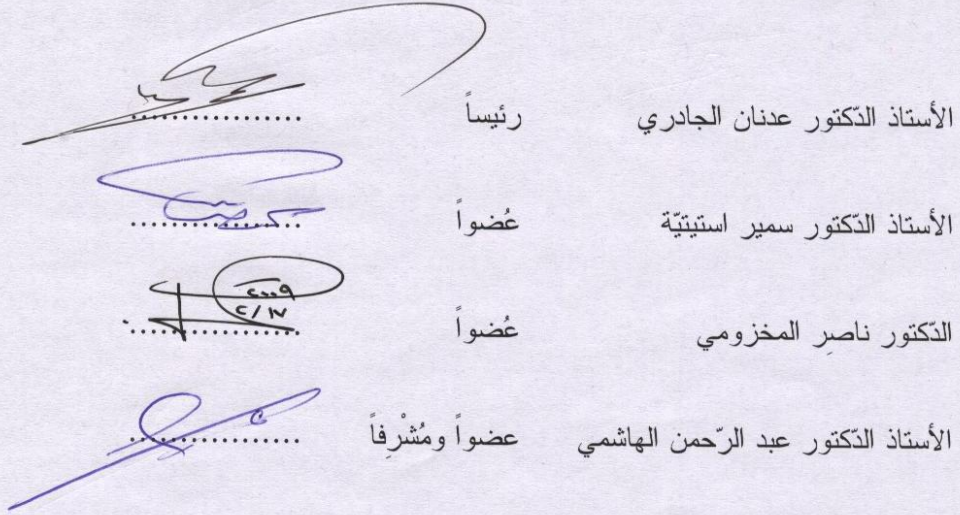 الأستاذ الدّكتور عدنان الجادري رئيساً ..................
الأستاذ الدّكتور سمير استيتيّة عُضواً ..................
٢٠٠٩
٢/١٧
الدّكتور ناصِر المخزومي عُضواً ..................
الأستاذ الدّكتور عبد الرّحمن الهاشمي عضواً ومُشْرِفاً ..................